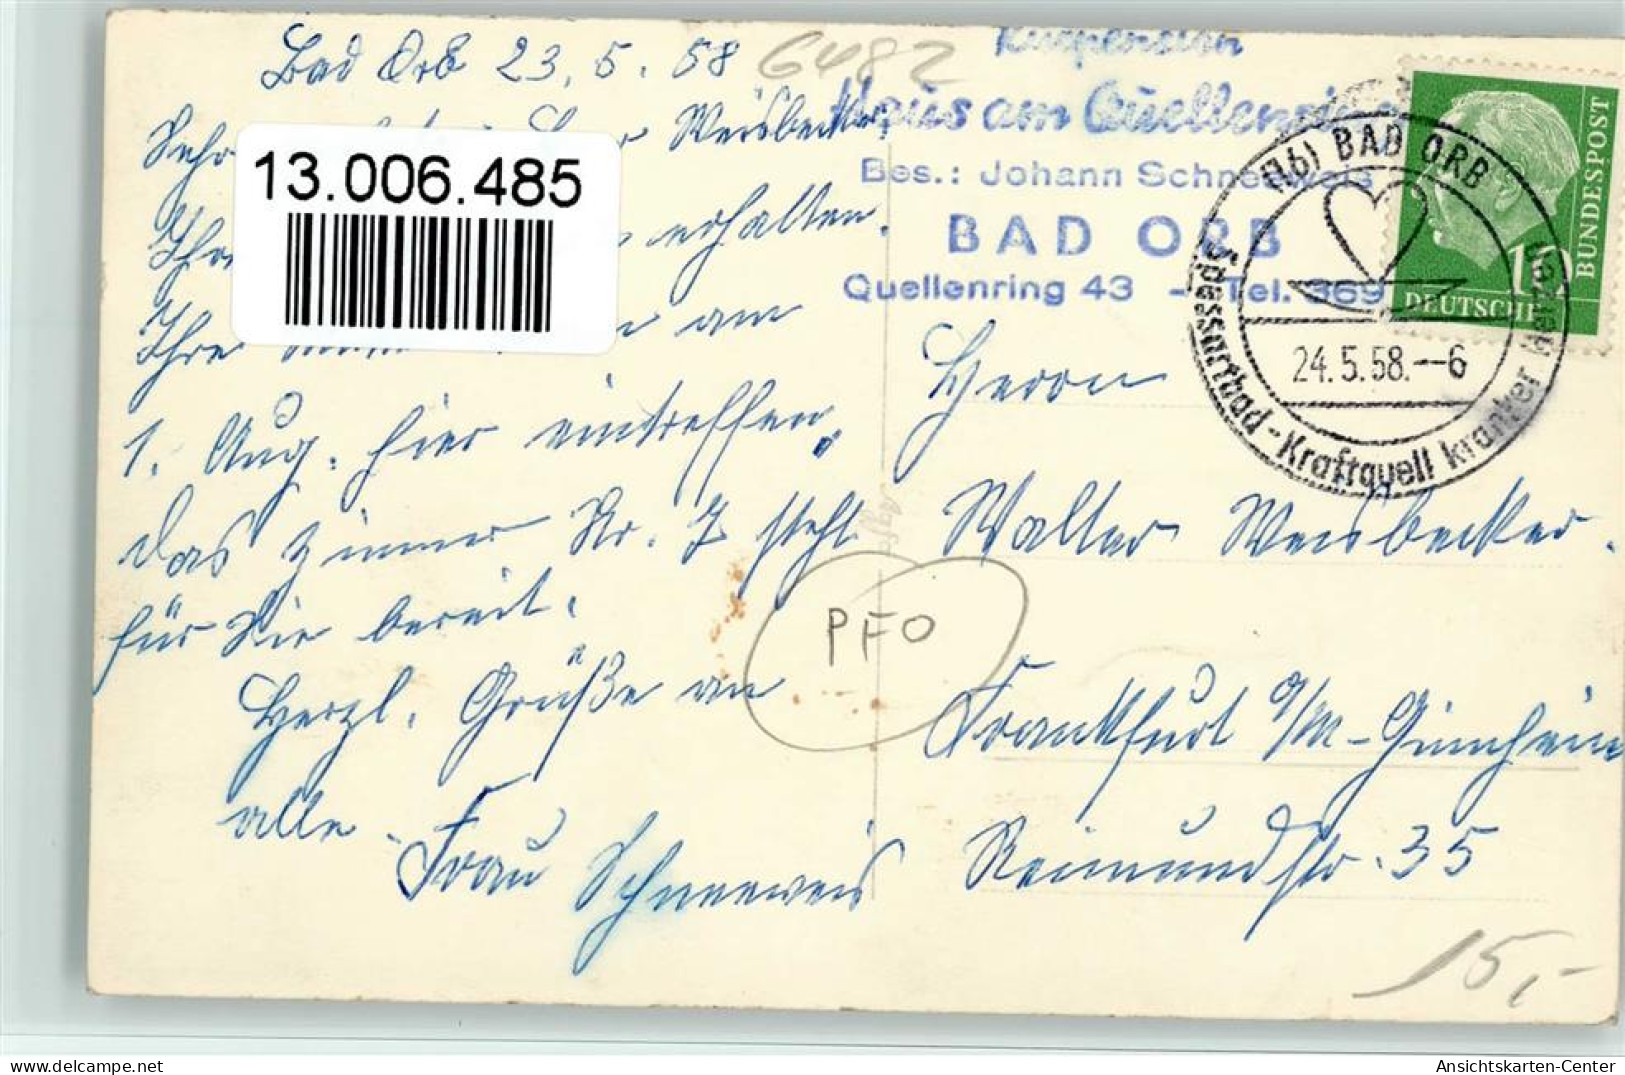 Bad Orb 23.5.58
6482
Kurpension
Haus am Quellenring
Bes.: Johann Schneeweis
BAD ORB
Quellenring 43 - Tel. 369
(16) BAD ORB
Spessartbad-Kraftquell kranker Herzen
24.5.58.--6
DEUTSCHE
BUNDESPOST
10
13.006.485
Sehr Herr Weisbecker,
Ihre erhalten.
Ihre am
1. Aug. hier eintreffen,
das Zimmer Nr. 7 steht
für Sie bereit.
Herzl. Grüße an
alle.
Frau Schneeweis
Herrn
Walter Weisbecker.
Frankfurt a/M-Ginnheim
Reimundstr. 35
PFO
15,-
Ansichtskarten-Center